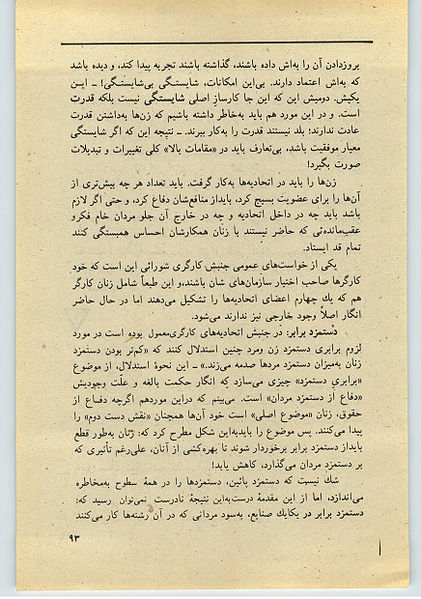 بروزدادن آن را به‌اش داده باشند، گذاشته باشند تجربه پیدا کند، و دیده باشد
که به‌اش اعتماد دارند. بی‌این امکانات، شایستگی بی‌شایستگی! ـ ایـن
یکیش. دومیش این که این جا کارساز اصلی شایستگی نیست بلکه قدرت
است. و در این مورد هم باید به‌خاطر داشته باشیم که زن‌ها به‌داشتن قدرت
عادت ندارند؛ بلد نیستند قدرت را به‌کار ببرند. ـ نتیجه این که اگر شایستگی
معیار موفقیت باشد، بی‌تعارف باید در «مقامات بالا» کلی تغییرات و تبدیلات
صورت بگیرد!
زن‌ها را باید در اتحادیه‌ها به‌کار گرفت. باید تعداد هر چه بیش‌تری از
آن‌ها را برای عضویت بسیج کرد، بایداز منافع‌شان دفاع کرد، و حتی اگر لازم
باشد باید چه در داخل اتحادیه و چه در خارج آن جلو مردان خام فکرد
عقب‌مانده‌ئی که حاضر نیستند با زنان همکارشان احساس همبستگی کنند
تمام قد ایستاد.
یکی از خواست‌های عمومی جنبش کارگری شورائی این است که خود
کارگرها صاحب اختیار سازمان‌های شان باشند،و این طبعاً شامل زنان کارگر
هم که یك چهارم اعضای اتحادیه‌ها را تشکیل می‌دهند اما در حال حاضر
انگار اصلاً وجود خارجی نیز ندارند می‌شود.
دستمزد برابر: در جنبش اتحادیه‌های کارگری‌معمول بوده است در مورد
لزوم برابری دستمزد زن ومرد چنین استدلال کنند که «کم‌تر بودن دستمزد
زنان به‌میزان دستمزد مردها صدمه می‌زند.» ـ این نحوهٔ استدلال، از موضوع
«برابری دستمزد» چیزی می‌سازد که انگار حکمت بالغه و علّت وجودیش
«دفاع از دستمزد مردان» است. می‌بینم که دراین موردهم اگرچه دفـاع از
حقوق، زنان «موضوع اصلی» است خود آن‌ها همچنان «نقش دست دوم» را
پیدا می‌کنند. پس موضوع را بایدبه‌این شکل مطرح کرد که: زنان به‌طور قطع
بایداز دستمزد برابر برخوردار شوند تا بهره‌کشی از آنان، علی‌رغم تأثیری که
بر دستمزد مردان می‌گذارد، کاهش یابد!
شك نیست که دستمزد پائین، دستمزدها را در همهٔ سطوح به‌مخاطره
می‌اندازد، اما از این مقدمهٔ درست‌به‌این نتیجهٔ نادرست نمی‌توان رسید که:
دستمزد برابر در یکایك صنایع، به‌سود مردانی که در آن رشته‌ها کار می‌کنند
۹۳